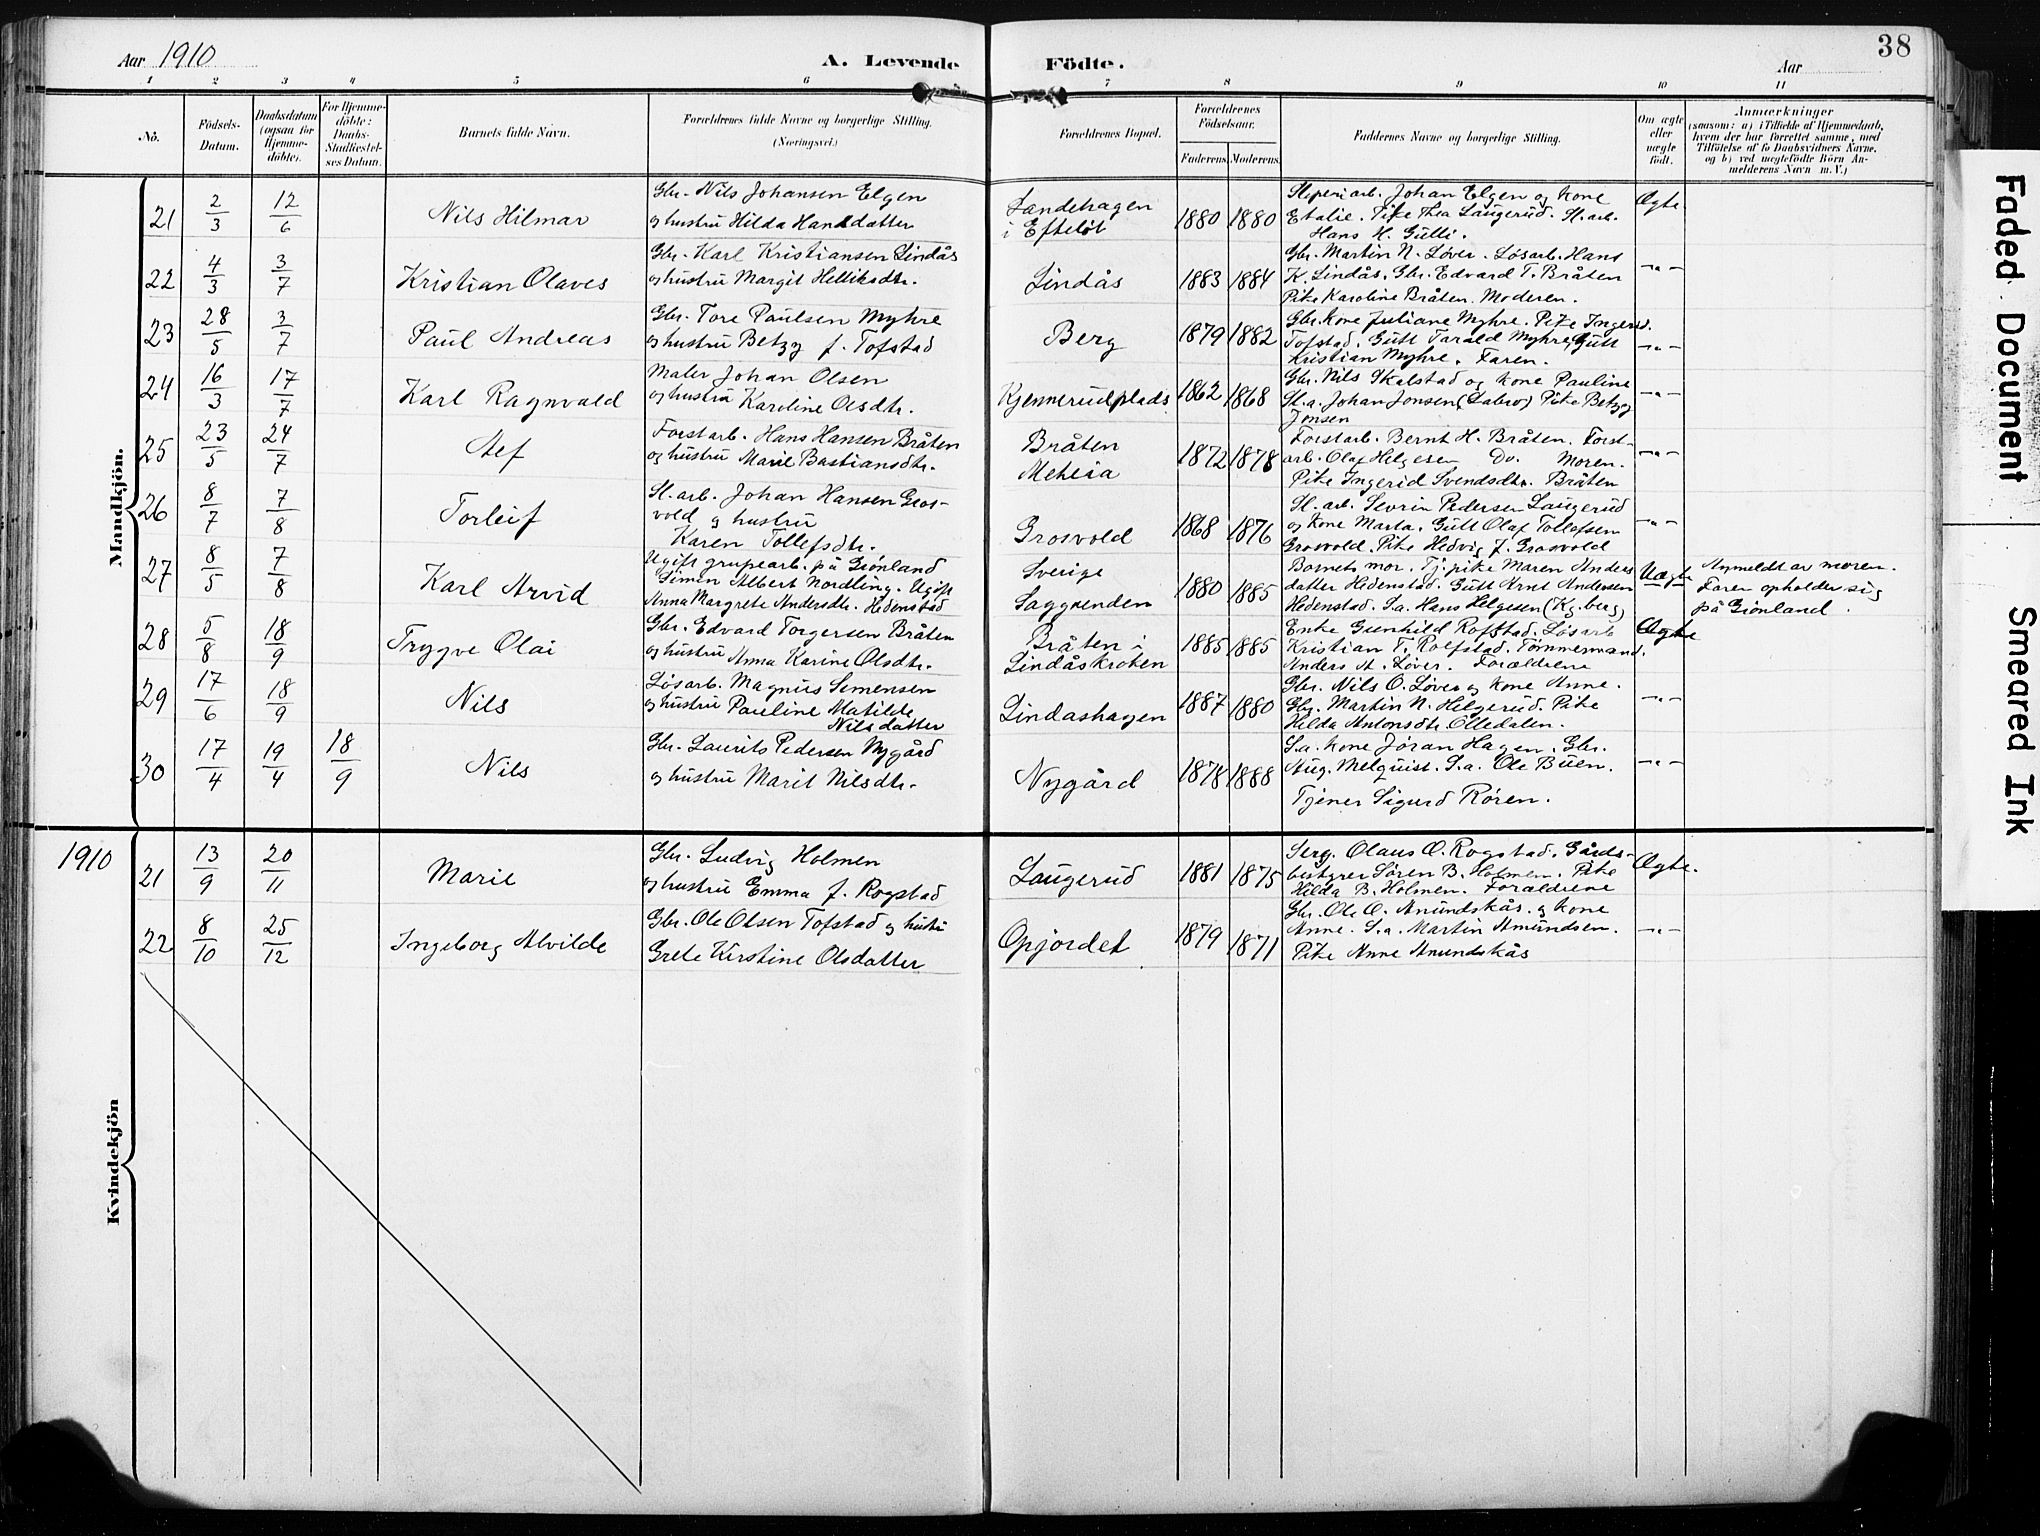 38
Aar 1910
A. Levende Födte.
Aar
1 2 3 4 5 6 7 8 9 10 11
No.
Födsels-Datum.
Daabsdatum (ogsaa for Hjemmedöbte).
For Hjemmedöbte: Daabs-Stadfæstelses Datum.
Barnets fulde Navn.
Forældrenes fulde Navne og borgerlige Stilling. (Næringsvei.)
Forældrenes Bopæl.
Forældrenes Födselsaar.
Faderens. Moderens.
Faddernes Navne og borgerlige Stilling.
Om ægte eller uægte født.
Anmærkninger
(saasom: a) i Tilfælde af Hjemmedaab, hvem der har forrettet samme, med Tilföielse af to Daabsvidners Navne, og b) ved uægtefödte Börn Anmelderens Navn m. V.)
Mandkjön.
21 2/3 12/6 Nils Hilmar
Gbr. Nils Johansen Elgen
og hustru Hilda Hansdatter
Landehagen
i Efteløt
1880 1880
Sliperiarb. Johan Elgen og kone
Etalie. Pike Thea Laugerud. Sl.arb.
Hans H. Gulli.
Ægte
22 4/3 3/7 Kristian Olaves
Gbr. Karl Kristiansen Lindås
og hustru Margit Helliksdtr.
Lindås
1883 1884
Gbr. Martin N. Løver. Løsarb. Hans
K. Lindås. Gbr. Edvard T. Bråten
Pike Karoline Bråten. Moderen.
-"-
23 28/5 3/7 Paul Andreas
Gbr. Tore Paulsen Myhre
og hustru Betzy f. Tofstad
Berg
1879 1882
Gbr. kone Juliane Myhre. Pike Ingerid
Tofstad. Gutt Tarald Myhre, Gutt
Kristian Myhre. Faren.
-"-
24 16/3 17/7 Karl Ragnvald
Maler Johan Olsen
og hustru Karoline Olsdtr.
Kjennerudplads
1862 1868
Gbr. Nils Skalstad og kone Pauline
Sl.a. Johan Jonsen (Labro) Pike Betzy
Jonsen
-"-
25 23/5 24/7
Forstarb. Hans Hansen Bråten
og hustru Marie Bastiansdtr.
Bråten
Meheia
1872 1878
Forstarb. Bernt H. Bråten. Forst-
arb. Olaf Helgesen Do. Moren.
Pike Ingerid Svendsdtr. Bråten
-"-
26 8/7 7/8 Torleif
Sl.arb. Johan Hansen Gros-
vold og hustru
Karen Tollefsdtr.
Grosvold
1868 1876
Sl.arb. Sevrin Pedersen Laugerud
og kone Marta. Gutt Olaf Tollefsen
Grosvold. Pike Hedvig J. Grosvold
-"-
27 8/5 7/8 Karl Arvid
Ugift grupearb. på Grönland
Simen Albert Nordling. Ugift
Anna Margrete Andersdtr. Hedenstad
Sverige
Saggrenden
1880 1885
Barnets mor. Tj.pike Maren Anders
datter Hedenstad. Gutt Arnt Andersen
Hedenstad. S.a. Hans Helgesen (Kg.berg)
Uægte
Anmeldt av moren.
Faren opholder sig
på Grönland.
28 5/8 18/9 Trygve Olai
Gbr. Edvard Torgersen Bråten
og hustru Anna Karine Olsdtr.
Bråten i
Lindåskroken
1885 1885
Enke Gunhild Rofstad. Løsarb
Kristian T. Rolfstad. Tømmermand
Anders A. Løver. Forældrene
Ægte
29 17/6 18/9 Nils
Løsarb. Magnus Simensen
og hustru Pauline Matilde
Nilsdatter
Lindåshagen
1887 1880
Gbr. Nils O. Løver og kone Anne.
Gbr. Martin N. Helgerud. Pike
Hilda Antonsdtr. Olledalen.
-"-
30 17/4 19/4 18/9 Nils
Gbr. Laurits Pedersen Nygård
og hustru Marit Nilsdtr.
Nygård
1878 1888
S.a. kone Jøran Hagen. Gbr.
Aug. Melquist. S.a. Ole Buen.
Tjener Sigurd Røren.
-"-
Kvindekjön
1910
21 13/9 20/11 Marie
Gbr. Ludvig Holmen
og hustru Emma f. Rogstad
Laugerud
1881 1875
Serg. Olaus O. Rogstad. Gårds-
bestyrer Søren B. Holmen. Pike
Hilda B. Holmen. Forældrene
Ægte.
22 8/10 25/12 Ingeborg Alvilde
Gbr. Ole Olsen Tofstad og hustru
Grete Kirstine Olsdatter
Opjordet
1879 1871
Gbr. Ole O. Anundskås. og kone
Anne. S.a. Martin Amundsen.
Pike Anne Anundskås
-"-
Faded Document
Smeared Ink